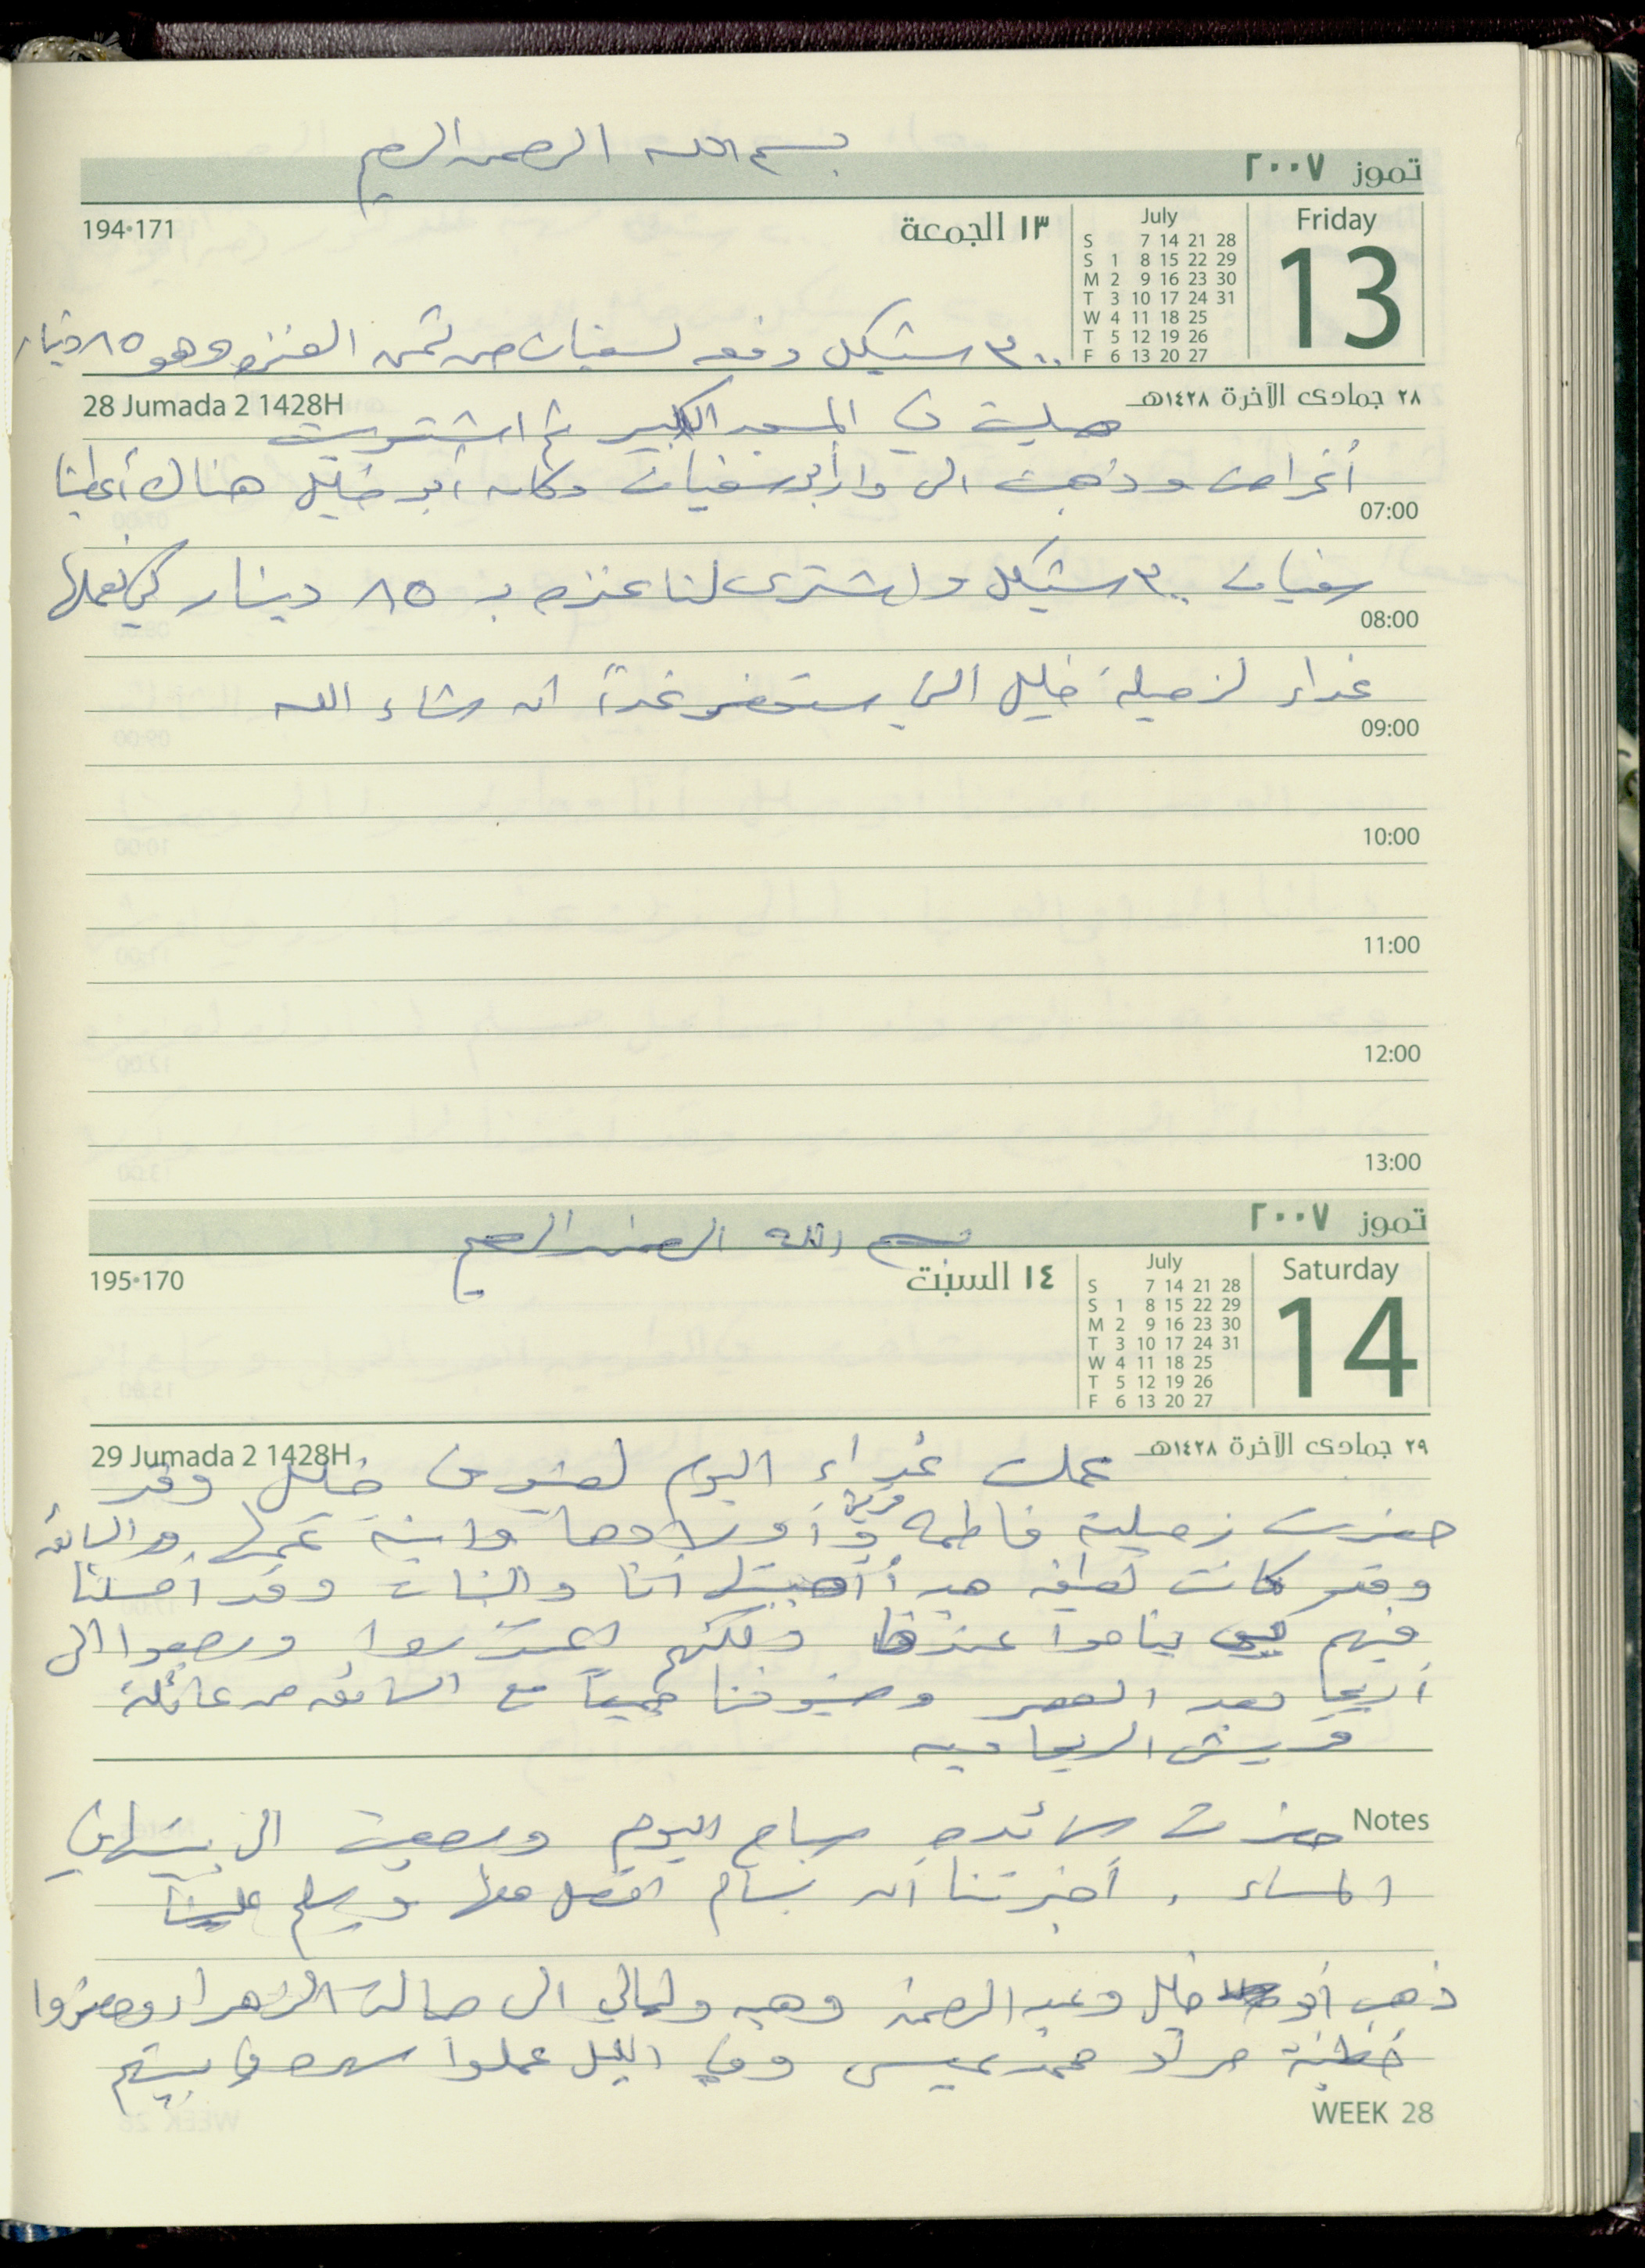 بسم الله الرحمن الرحيم
تموز ٢٠٠٧
Friday
13
July
S 7 14 21 28
S 1 8 15 22 29
M 2 9 16 23 30
T 3 10 17 24 31
W 4 11 18 25
T 5 12 19 26
F 6 13 20 27
١٣ الجمعة
194•171
٣٠٠ شيكل دفعه لسفيان من ثمن العنزه وهو ٨٥ دينار
٢٨ جمادى الآخرة ١٤٢٨هـ
28 Jumada 2 1428H
صليت في المسجد الكبير ثم اشتريت
أغراض وذهبت الى دار أبو سفيان وكان أبو خليل هناك أعطينا
07:00
سفيان ٣٠٠ شيكل واشترى لنا عنزه بـ ٨٥ دينار كي نعملها
08:00
غداء لزميلة خليل التي ستحضر غداً ان شاء الله
09:00
10:00
11:00
12:00
13:00
بسم الله الرحمن الرحيم
تموز ٢٠٠٧
Saturday
14
July
S 7 14 21 28
S 1 8 15 22 29
M 2 9 16 23 30
T 3 10 17 24 31
W 4 11 18 25
T 5 12 19 26
F 6 13 20 27
١٤ السبت
195•170
٢٩ جمادى الآخرة ١٤٢٨هـ
29 Jumada 2 1428H
عملت غداء اليوم لضيوف خليل وقد
حضرت زميلته فاطمه قريش و أولادها وابنة عمها والسائق
وقد كانت لطيفه جداً أنا والبنات وقد امسكنا
فيهم كي يناموا عندنا ولكنهم اعتذروا ورجعوا الى
أريحا بعد العصر وضيوفنا جميعاً مع السائق من عائلة
قريش الريحاويه
Notes
حضرت رائده صباح اليوم ورجعت الى بيتها في
المساء . أخبرتنا أن بسام اتصل معها ويسلم علينا
ذهب أبو خليل وعبد الرحمن وهبه ولمالي الى صالة الزهراء وحضروا
خطبة مراد محمد عيسى وفي الليل عملوا سهره في بيتهم
WEEK 28